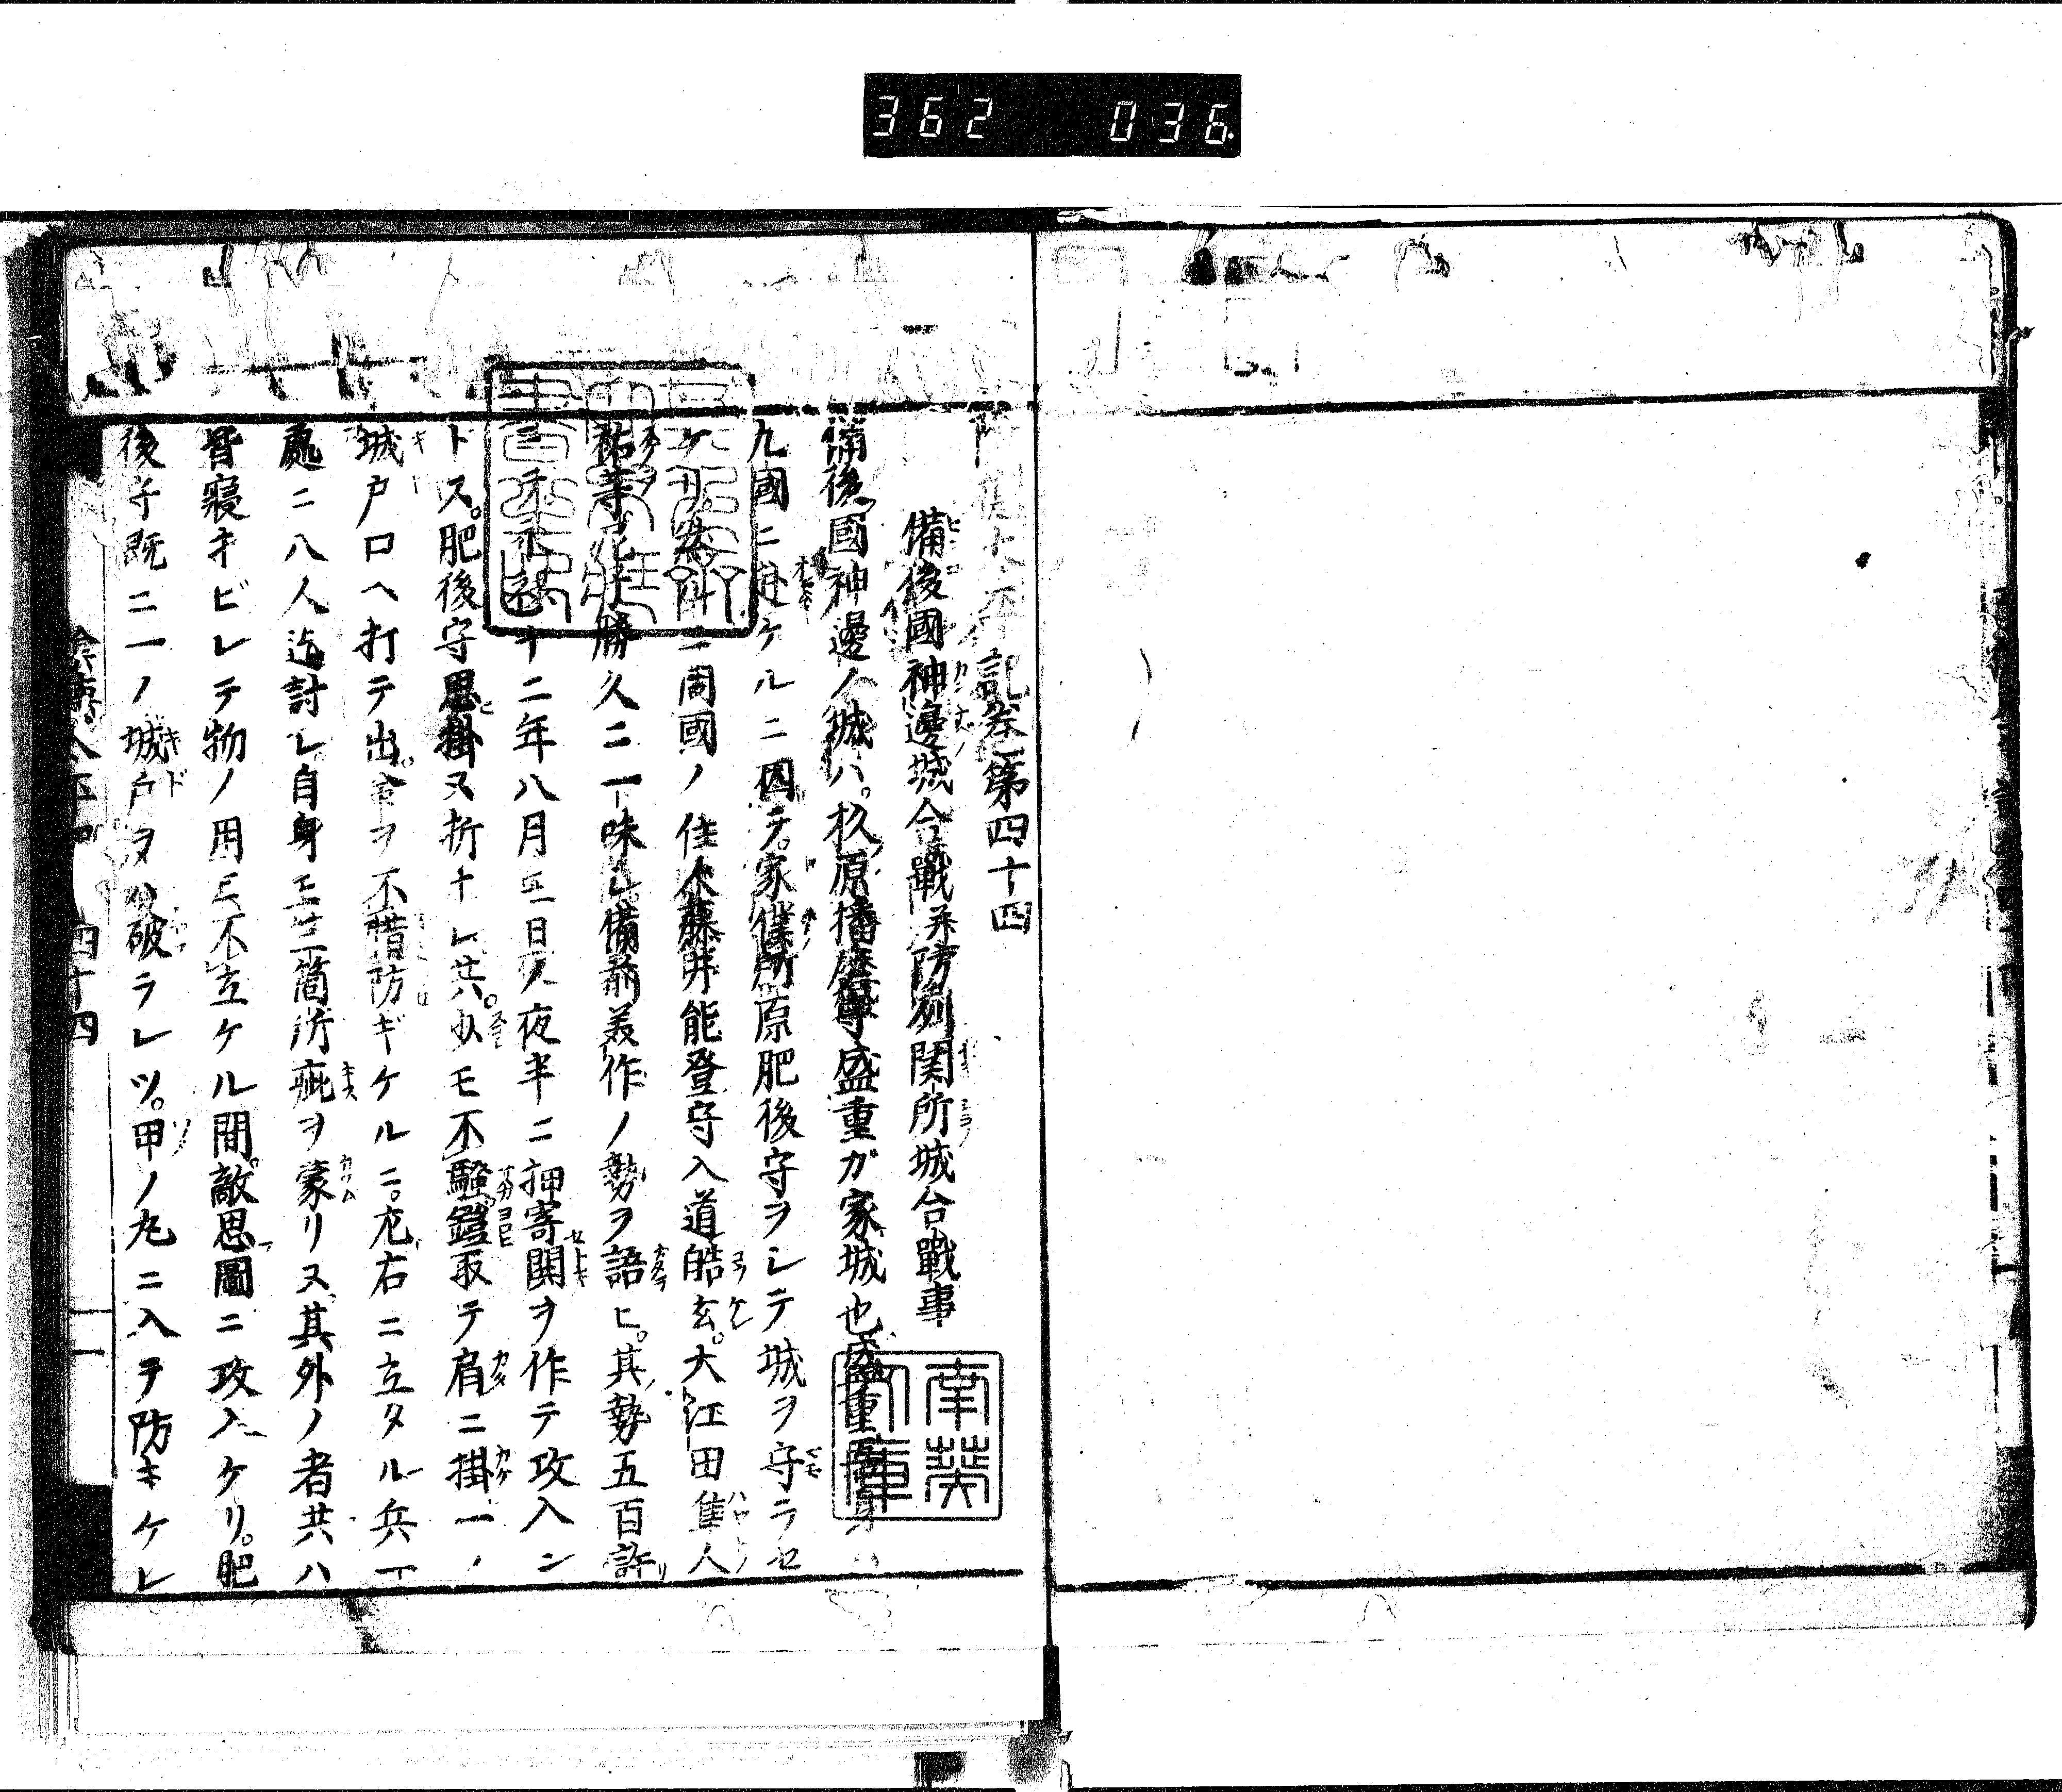 362 036
記卷第四十四
備後國神邊城合戰并防州関所城合戰事
備後國神邊ノ城ハ。杦原播磨守盛重ガ家城也盛重
九國ニ赴ケルニ因テ。家僕所原肥後守ヲシテ城ヲ守ラセ
ケリ。ニ周國ノ住人藤井能登守入道皓玄。大江田隼人
祐等。勝久ニ一味シ備前美作ノ勢ヲ語ヒ。其勢五百許
十二年八月三日ノ夜半ニ押寄閧ヲ作テ攻入ン
トス。肥後守思掛ヌ折ナレ共。少モ不騒鎧取テ肩ニ掛一ノ
城戸口ヘ打テ出。命ヲ不惜防ギケルニ。左右ニ立タル兵一
處ニ八人迄討レ自身モ三箇所疵ヲ蒙リヌ其外ノ者共ハ
皆寝オビレテ物ノ用ニ不立ケル間。敵思圖ニ攻入ケリ。肥
後守既ニ一ノ城戸ヲ破ラレツ。甲ノ丸ニ入テ防キケレ
四十四 一
南葵文庫